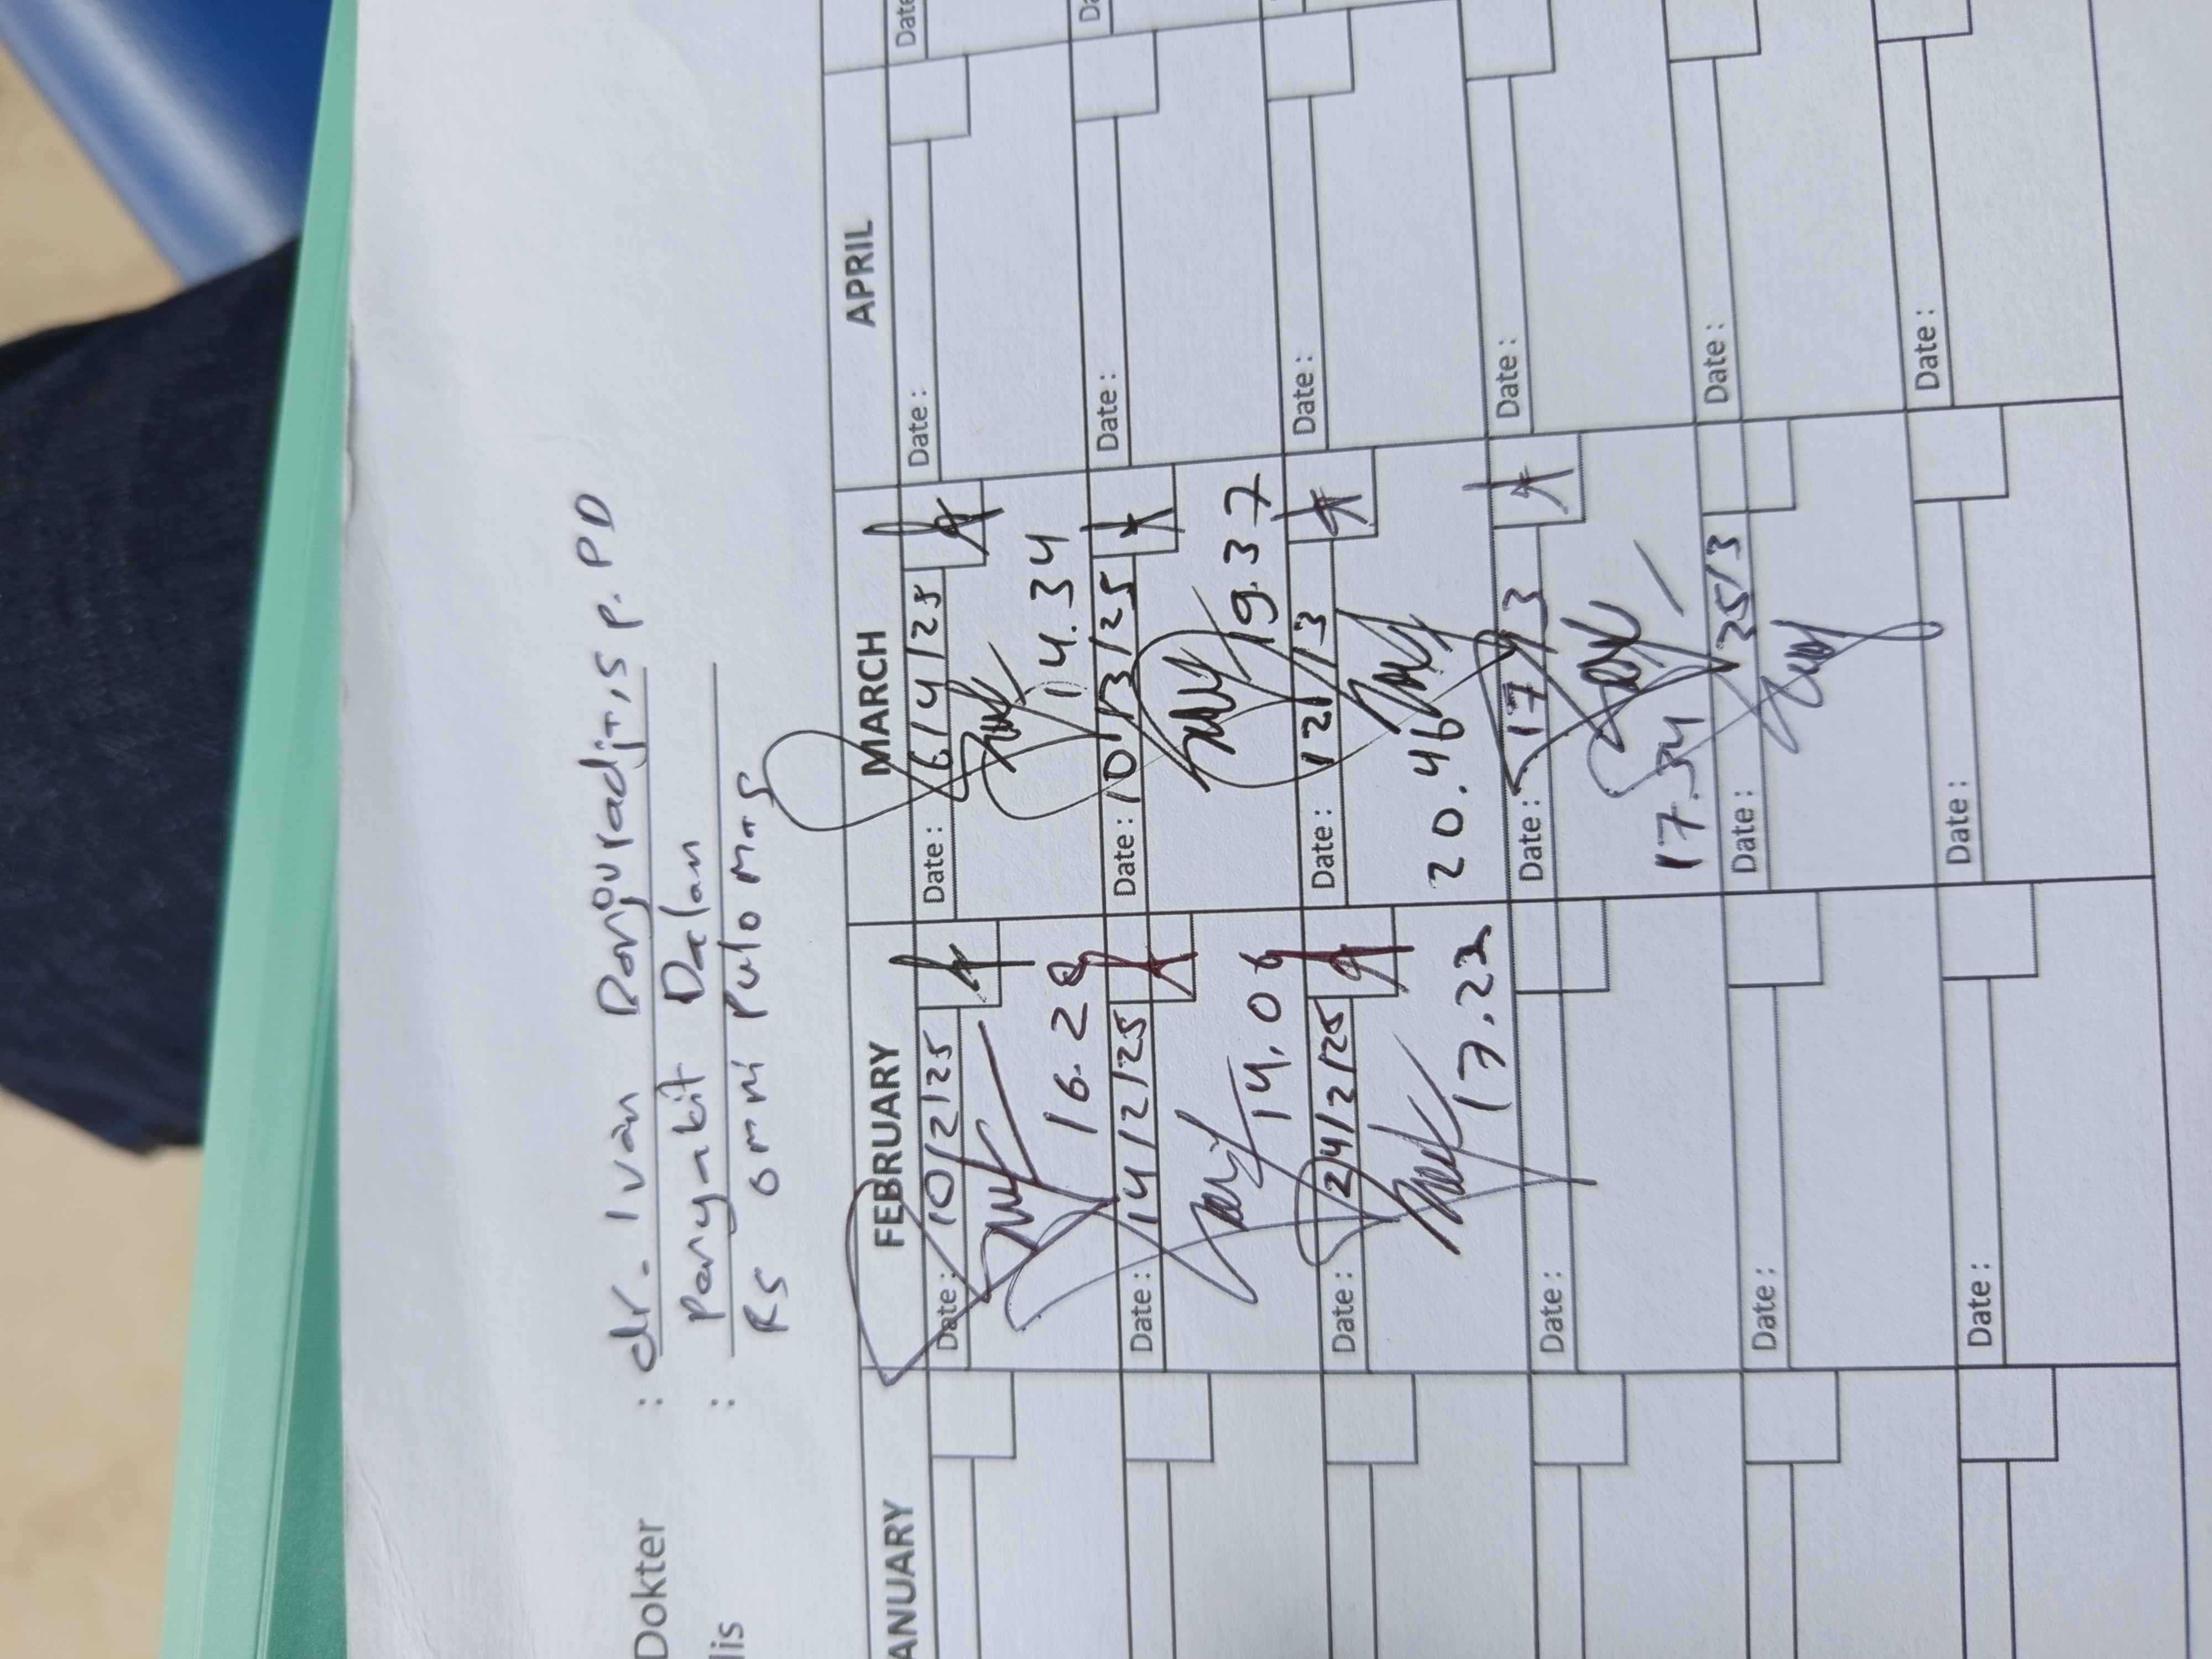 Dokter : dr. Ivan Bonjouradjt, Sp. PD
lis : Penyakit Dalam
RS omni Pulo Mas
ANUARY FEBRUARY MARCH APRIL
Date : 10/2/25 Date : 6/4/25 Date : Date
16.28 14.34
Date : 14/2/25 Date : 10/3/25 Date : Da
14.06 19.37
Date : 24/2/25 Date : 12/3 Date :
17.22 20.46
Date : Date : 17/3 Date :
17.34
Date : Date : 25/3 Date :
Date : Date : Date :